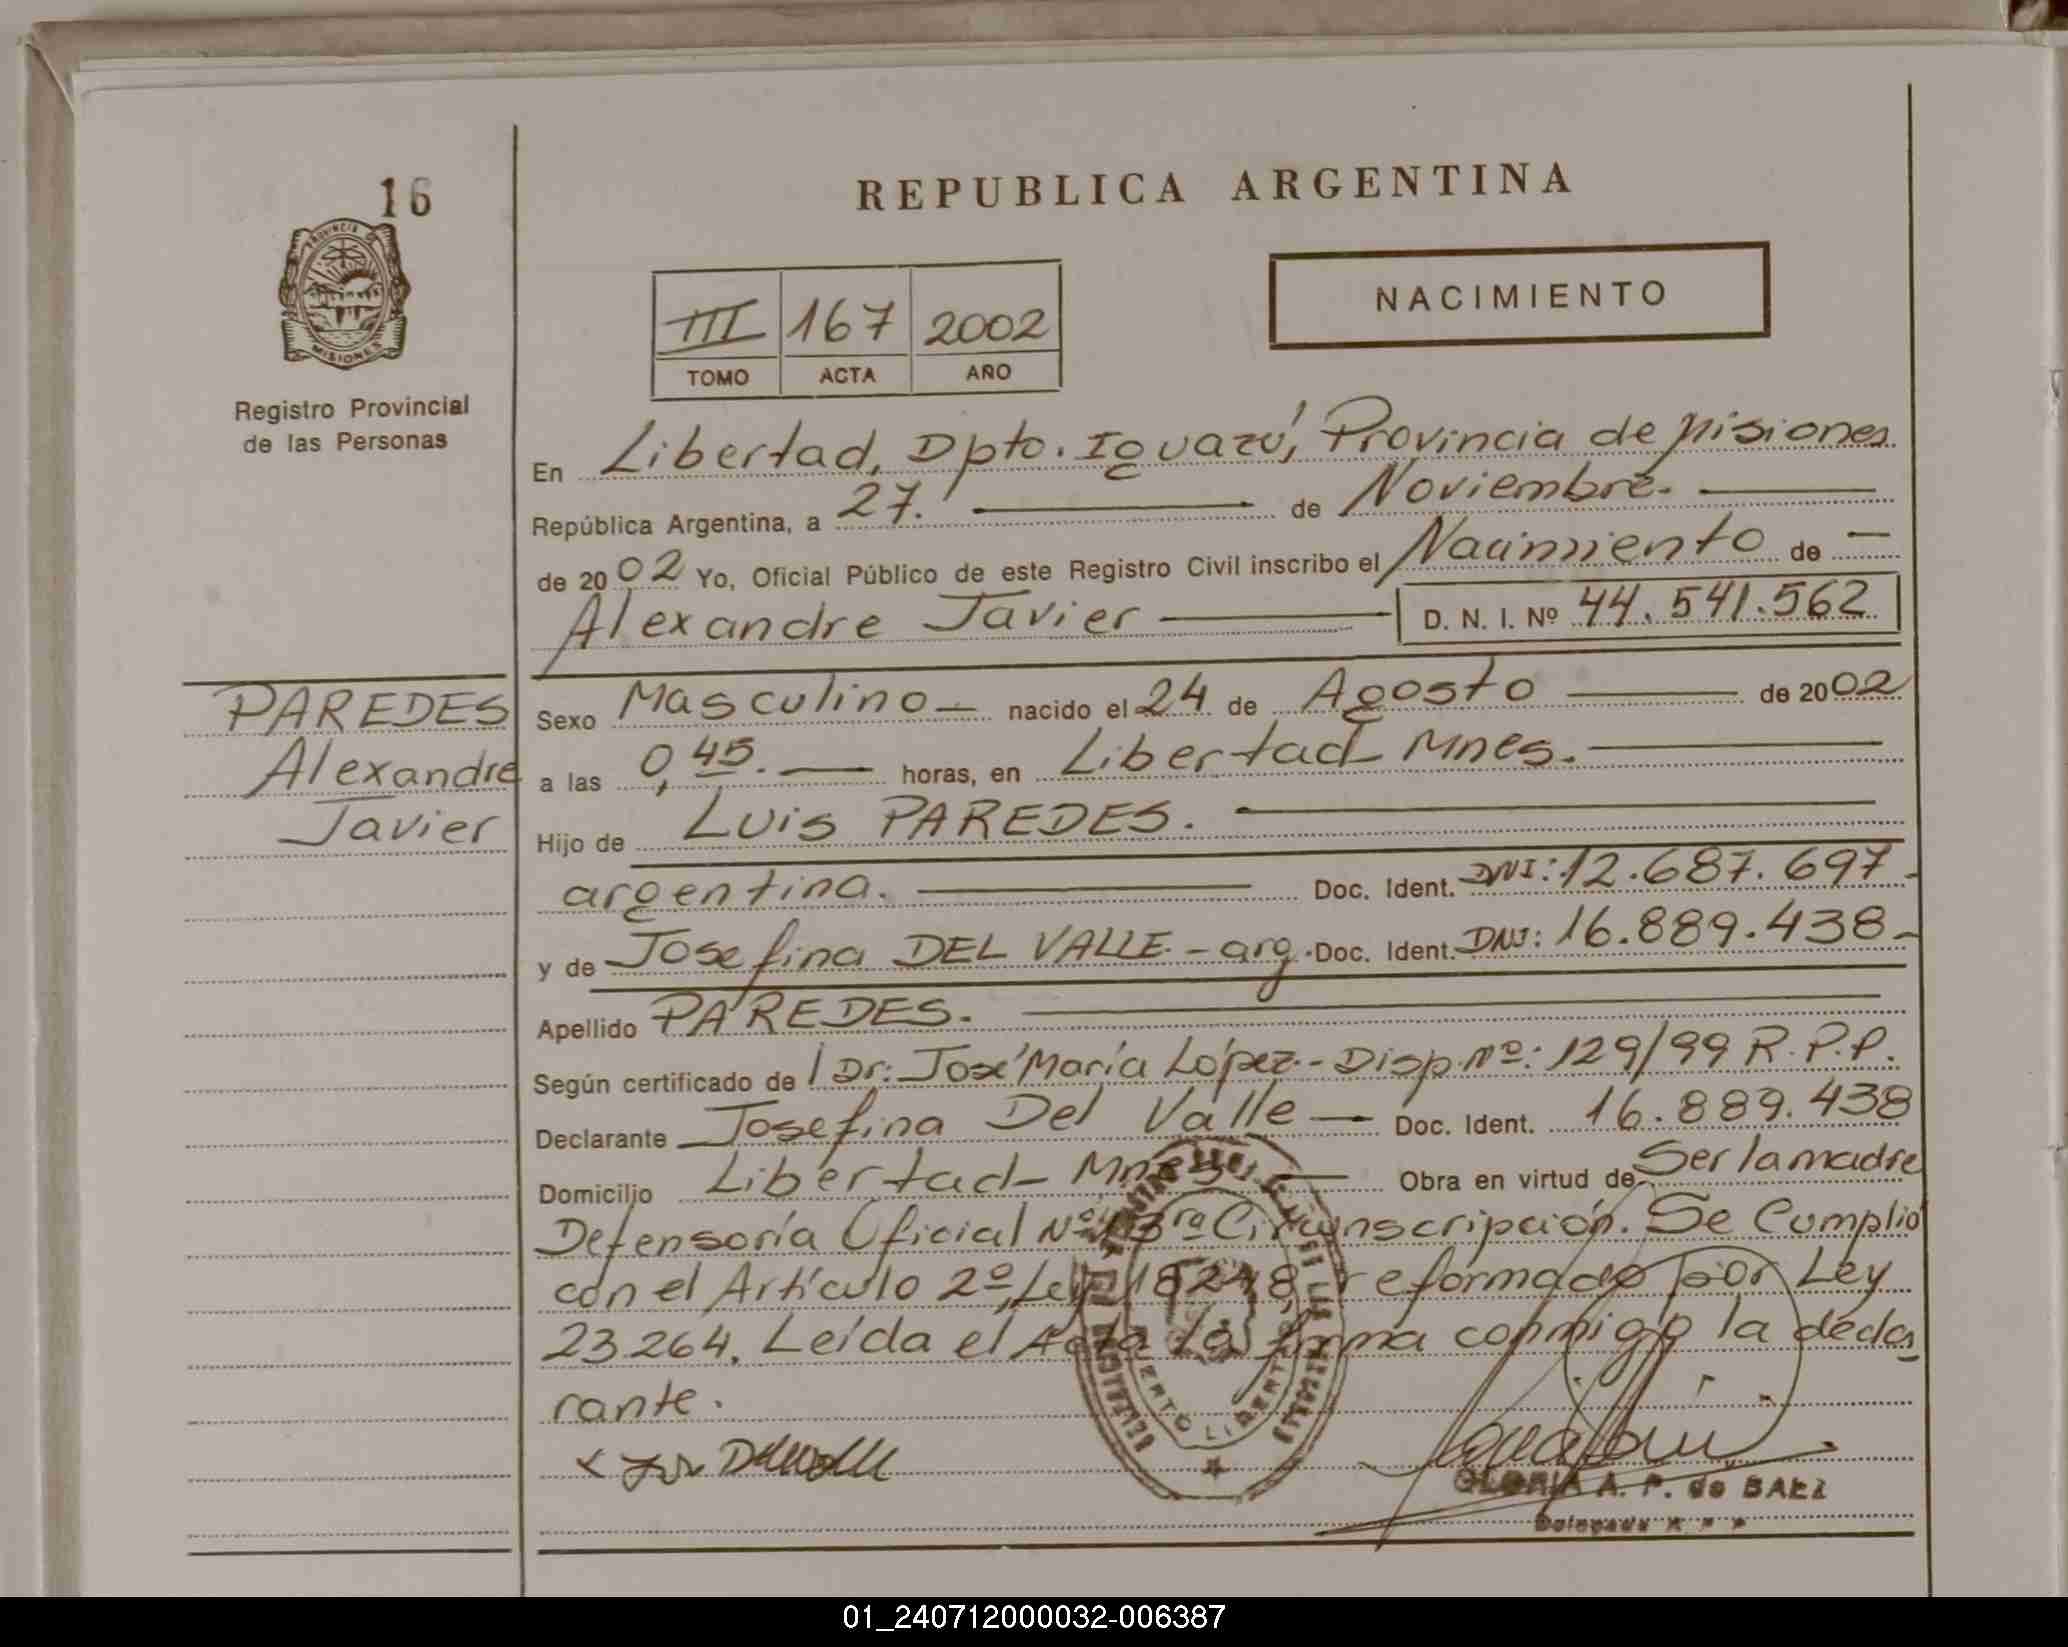 16
REPUBLICA ARGENTINA
PROVINCIA DE
MISIONES
Registro Provincial
de las Personas
III 167 2002
TOMO ACTA AÑO
NACIMIENTO
En Libertad, Dpto. Iguazú, Provincia de Misiones
República Argentina, a 27. de Noviembre.
de 2002 Yo, Oficial Público de este Registro Civil inscribo el Nacimiento de
Alexandre Javier D. N. I. Nº 44.541.562.
PAREDES
Alexandre
Javier
Sexo Masculino nacido el 24 de Agosto de 2002
a las 0,45. horas, en Libertad Mnes.
Hijo de Luis PAREDES.
argentina. Doc. Ident. DNI: 12.687.697
y de Josefina DEL VALLE - arg. Doc. Ident. DNI: 16.889.438
Apellido PAREDES.
Según certificado de Dr. José María López - Disp. Nº: 129/99 R.P.P.
Declarante Josefina Del Valle Doc. Ident. 16.889.438
Domicilio Libertad - Mnes Obra en virtud de Ser la madre
Defensoría Oficial Nº 1 3ra Circunscripción. Se Cumplió
con el Artículo 2º, Ley 18248, reformado por Ley
23264. Leída el Acta la firma conmigo la decla
rante.
PUERTO LIBERTAD
GLORIA A. P. de BAEZ
Delegada
01_240712000032-006387